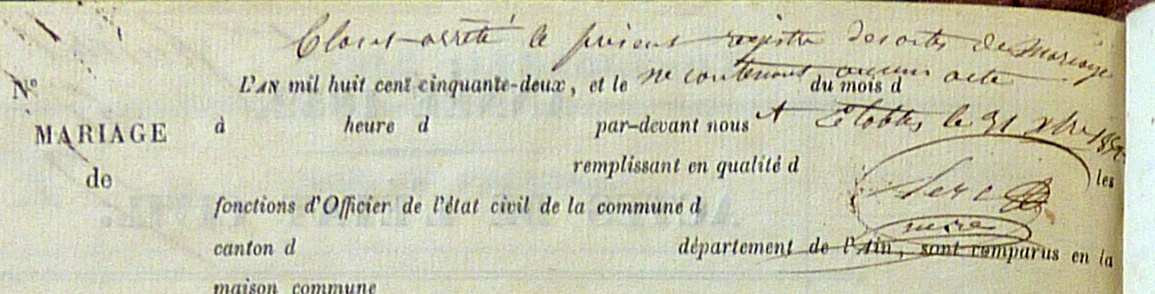 Clos et arrêté le présent registre des actes de Mariage
N° L'AN mil huit cent cinquante-deux, et le ne contenant aucun acte du mois d
MARIAGE à heure d par-devant nous A le 31 xbre 1852
de remplissant en qualité d les
fonctions d'Officier de l'état civil de la commune d
canton d maire département de l'Ain, sont comparus en la
maison commune